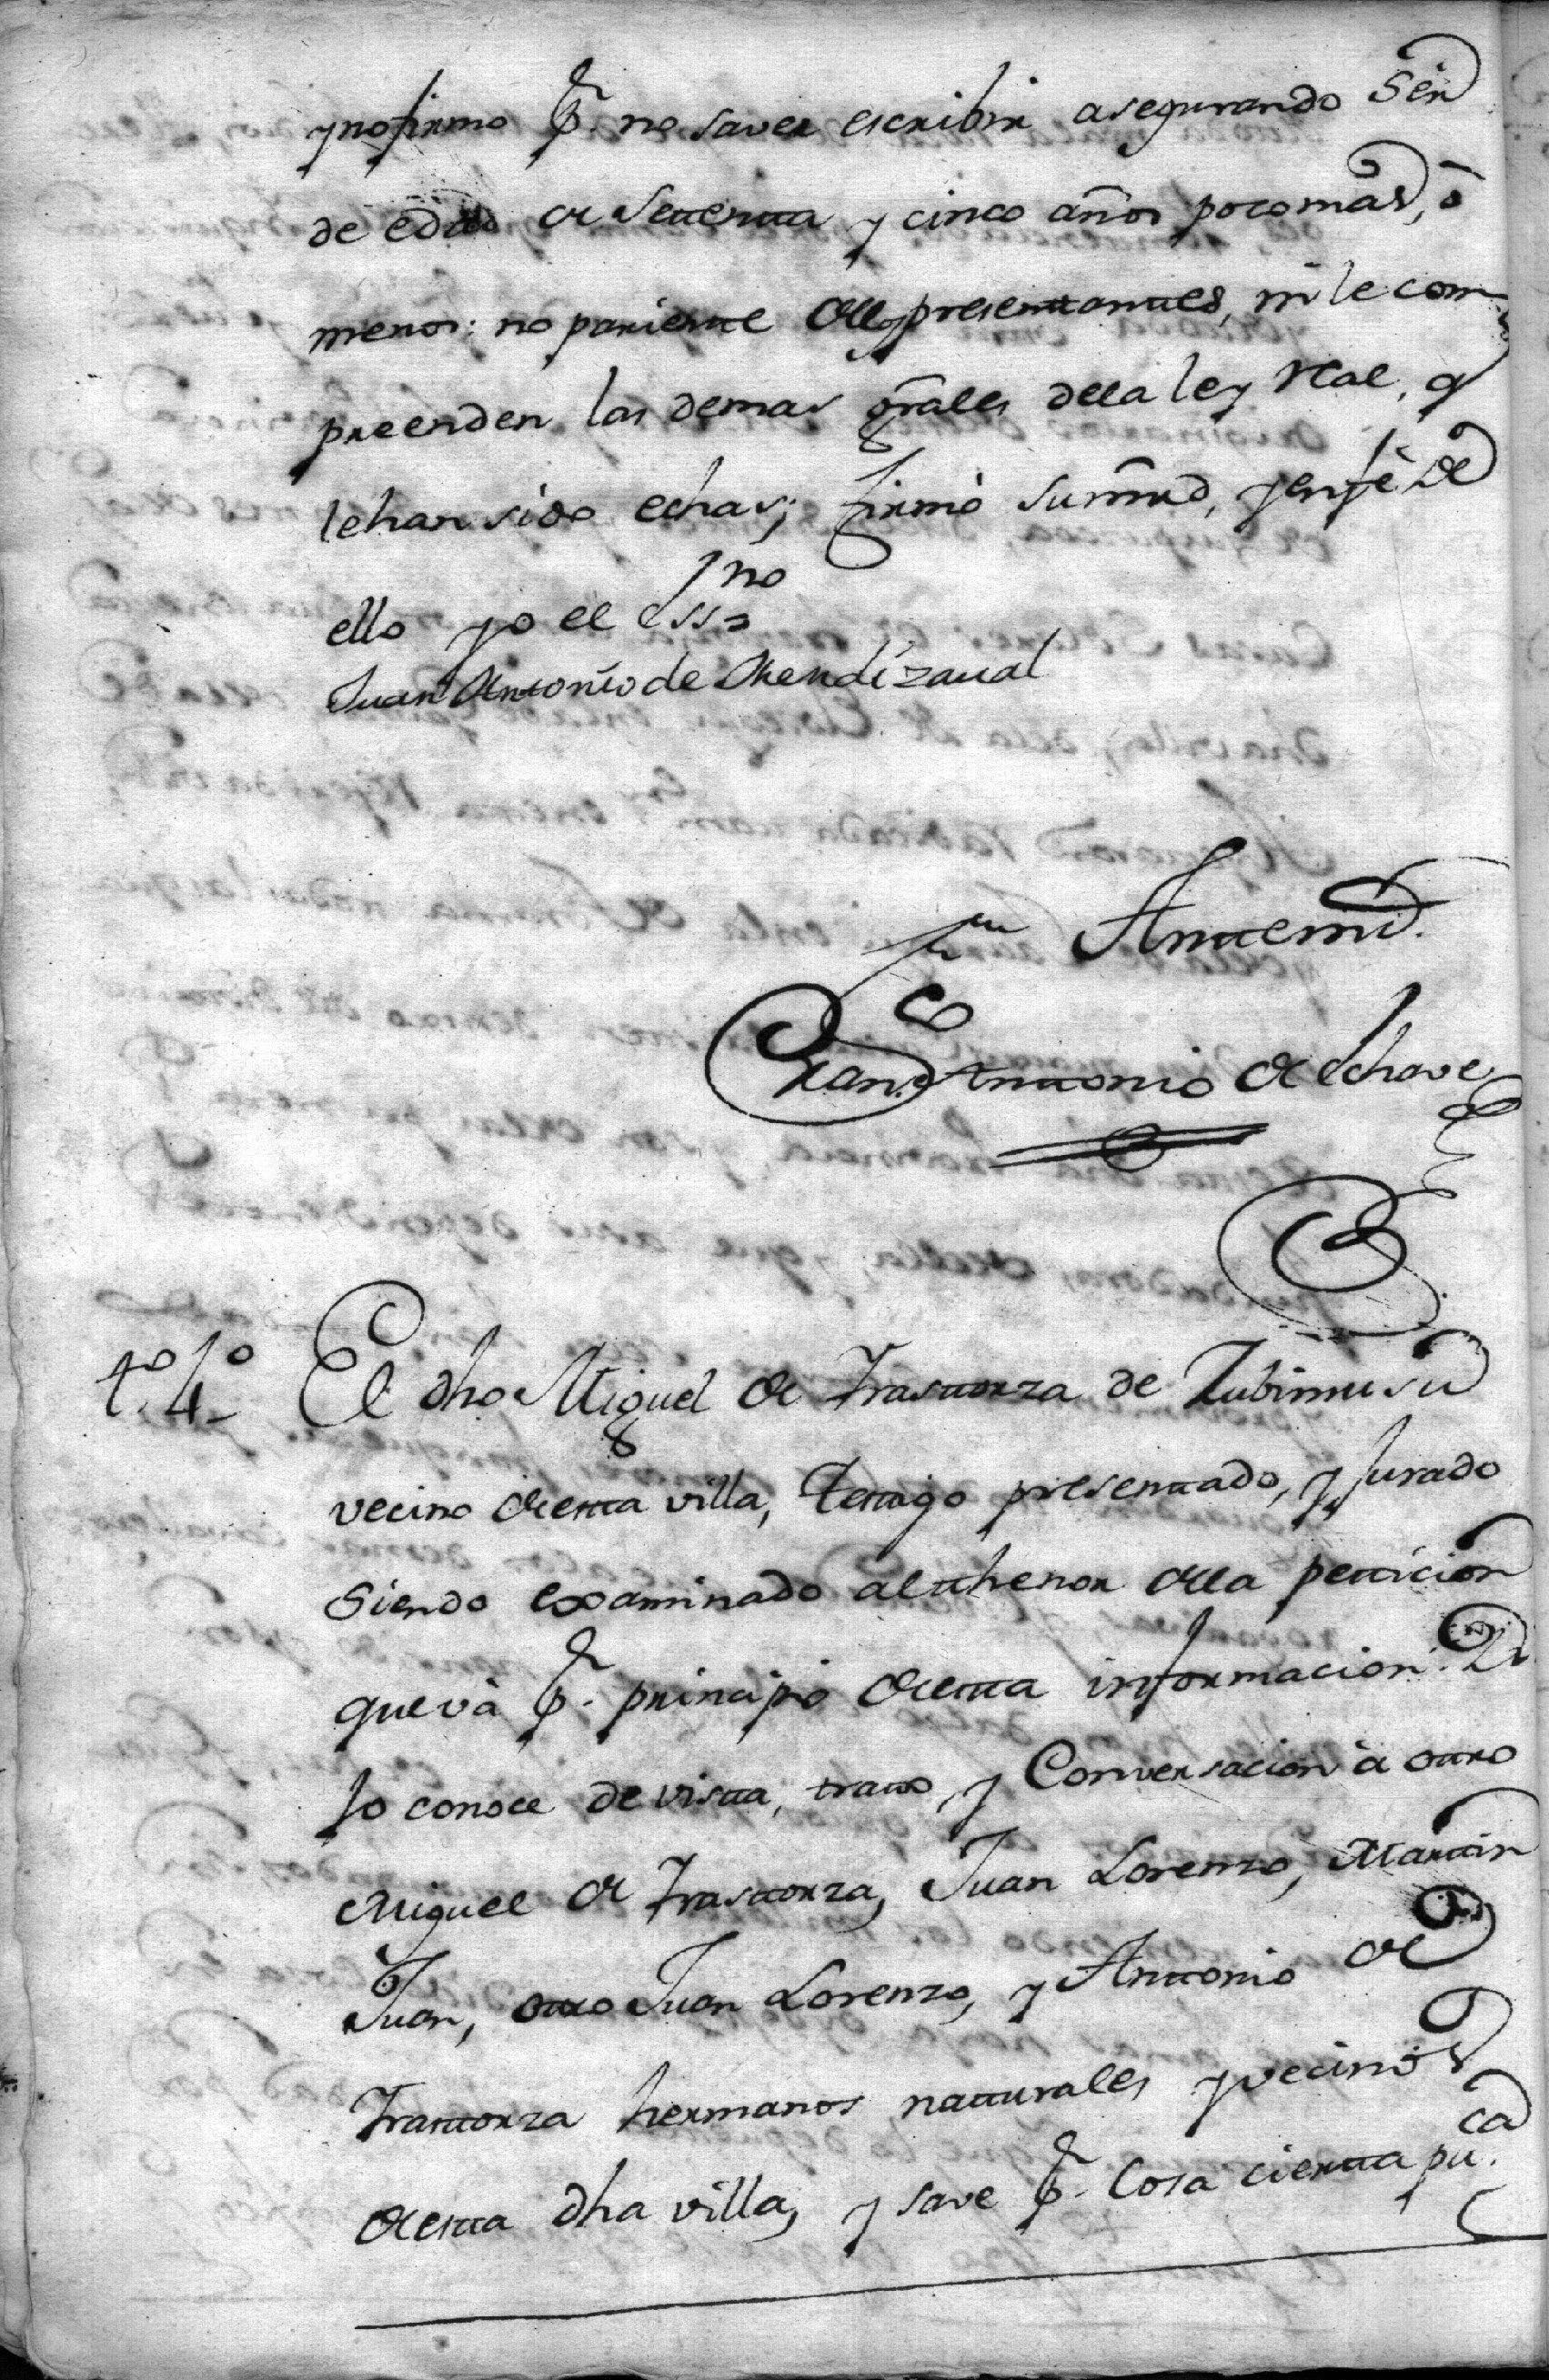 y no firmo p.r no saver escribir asegurando Ser
de edad de settentta y cinco años poco mas, ô
menos: no pariente de los presenttanttes, ni le com
preenden las demas grãles de la ley real, q
le han sido echas; firmò su mrd, y en fè de
ello yo el essno
Juan Antonio de Mendizaual
Anttemi.
Fran.co Anttonio de Echave
t.o 4.o El dho Miguel de Trasttorza de Zubimusu
vecino de estta villa, testtigo presenttado, y Jurado
Siendo examinado al tthenor de la pettición
que và p.r principio de estta informacion: D.
Jo conoce de vistta, tratto, y Conversacion à ottro
Miguel de Trasttorza, Juan Lorenzo, Marttin
Juan, ottro Juan Lorenzo, y Anttonio de
Trasttorza hermanos natturales y vecinos
de estta dha villa, y save p.r Cosa cierta pu.ca